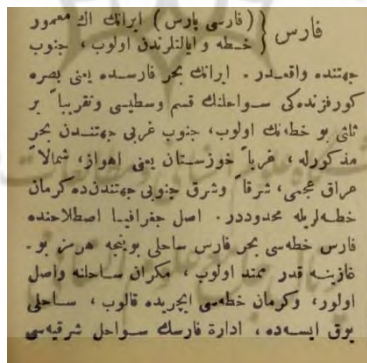 فارس { (فارسی پارس) ایرانك اك معمور
خطه و ایالتلرندن اولوب، جنوب
جهتنده واقعدر. ایرانك بحر فارسده یعنی بصره
كورفزنده‌كی سواحلنك قسم وسطیسی و تقریباً بر
ثلثی بو خطه‌نك اولوب، جنوب غربی جهتندن بحر
مذكورله، غرباً خوزستان یعنی اهواز، شمالاً
عراق عجمی، شرقاً و شرق جنوبی جهتندن ده كرمان
خطه‌لریله محدوددر. اصل جغرافیا اصطلاحنده
فارس خطه‌سی بحر فارس ساحلی بوینجه هرمز بو‌
غازینه قدر ممتد اولوب، مكران ساحلنه واصل
اولور، وكرمان خطه‌سی ایچریده قالوب، ساحلی
یوق ایسه‌ده، ادارۀ فارسك سواحل شرقیه‌سی